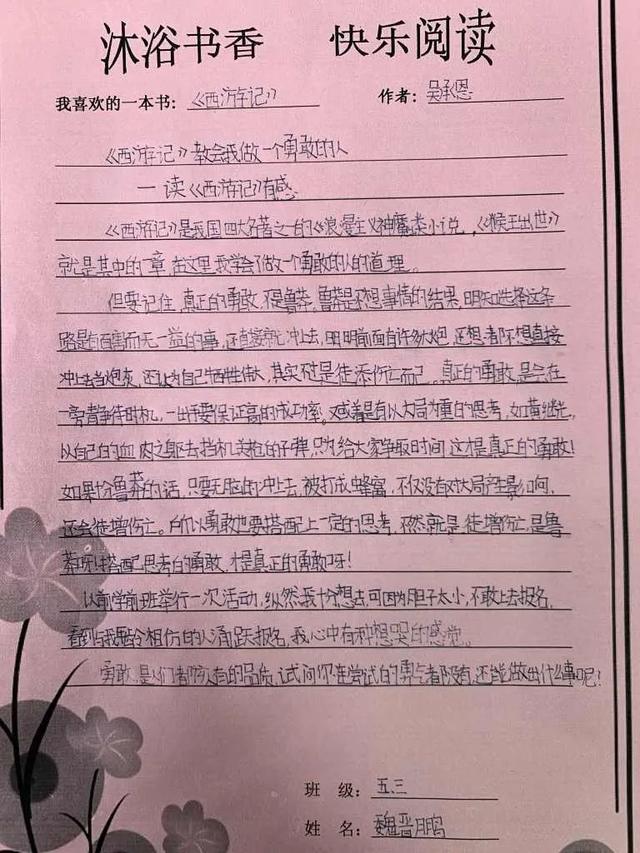 沐浴书香 快乐阅读
我喜欢的一本书：《西游记》 作者：吴承恩
《西游记》教会我做一个勇敢的人
一读《西游记》有感
《西游记》是我国四大名著之一的《浪漫主义神魔类小说，《猴王出世》
就是其中的一章，在这里我学会了做一个勇敢的人的道理。
但要记住，真正的勇敢，不是鲁莽，鲁莽是不想事情的结果，明知选择这条
路是有百害而无一益的事，还直接就冲上去，明明前面有许多火炮，还想都不想直接
冲上去当炮灰，还认为自己牺牲伟大，其实不过是徒添伤亡而已。真正的勇敢，是会在
一旁静待时机，一出手要保证高的成功率。又或着是有以大局为重的思考，如黄继光，
以自己的血肉之躯去挡机关枪的子弹，只为给大家争取时间，这才是真正的勇敢！
如果你鲁莽的话，只要无脑的冲上去，被打成蜂窝，不仅没有对大局产生影响，
还会徒增伤亡。所以勇敢也要搭配上一定的思考，不然就是徒增伤亡，是鲁
莽呀！搭配思考的勇敢，才是真正的勇敢呀！
以前学前班举行一次活动，纵然我十分想去，可因为胆子太小，不敢上去报名，
看到与我年龄相仿的人涌跃报名，我心中有种想哭的感觉。
勇敢，是人们都该有的品质，试问你在尝试的勇气都没有，还能做出什么事呢？
班 级：五.三
姓 名：魏晋鹏